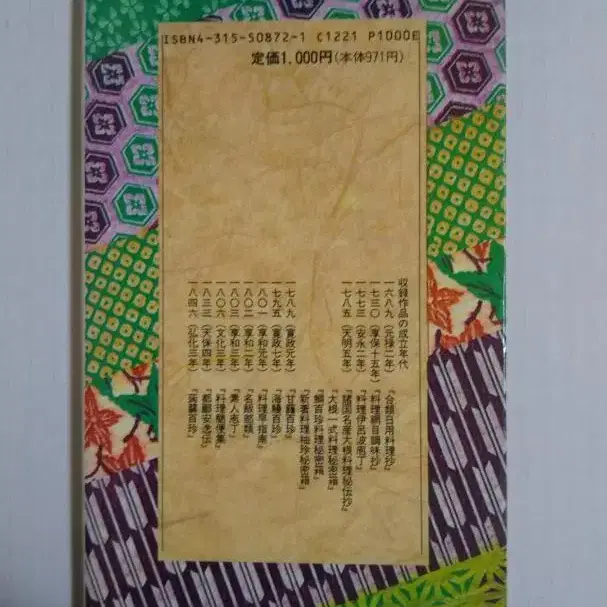 ISBN4-315-50872-1 C1221 P1000E
定価1,000円(本体971円)
収録作品の成立年代
一六八九(元禄二年)『合類日用料理抄』
一七三〇(享保十五年)『料理網目調味抄』
一七七三(安永二年)『料理伊呂波庖丁』
一七八五(天明五年)『諸国名産大根料理秘伝抄』
『大根一式料理秘密箱』
『鯛百珍料理秘密箱』
『新著料理柚珍秘密箱』
一七八九(寛政元年)『甘藷百珍』
一七九五(寛政七年)『海鰻百珍』
一八〇一(享和元年)『料理早指南』
一八〇二(享和二年)『名飯部類』
一八〇三(享和三年)『素人庖丁』
一八〇六(文化三年)『料理簡便集』
一八三三(天保四年)『都鄙安逸伝』
一八四六(弘化三年)『蒟蒻百珍』